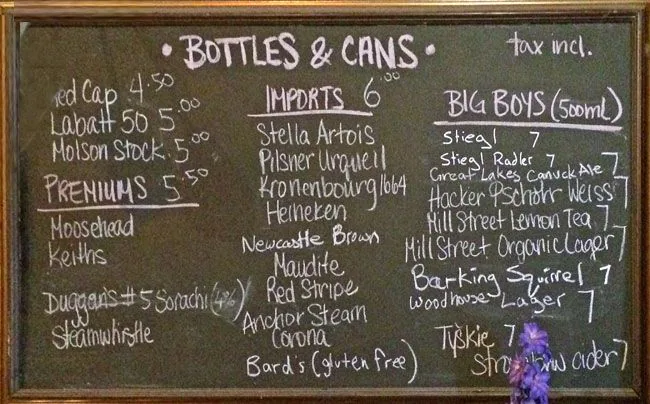 • BOTTLES & CANS •
tax incl.
Red Cap 4.50
Labatt 50 5.00
Molson Stock. 5.00
PREMIUMS 5.50
Moosehead
Keiths
Duggan's #5 Sorachi (4%)
Steamwhistle
IMPORTS 6.00
Stella Artois
Pilsner Urquell
Kronenbourg 1664
Heineken
Newcastle Brown
Maudite
Red Stripe
Anchor Steam
Corona
Bard's (gluten free)
BIG BOYS (500ml)
Stiegl 7
Stiegl Radler 7
Great Lakes Canuck Ale 7
Hacker Pschorr Weiss 7
Mill Street Lemon Tea 7
Mill Street Organic Lager 7
Barking Squirrel 7
Woodhouse Lager 7
Tyskie 7
cider 7